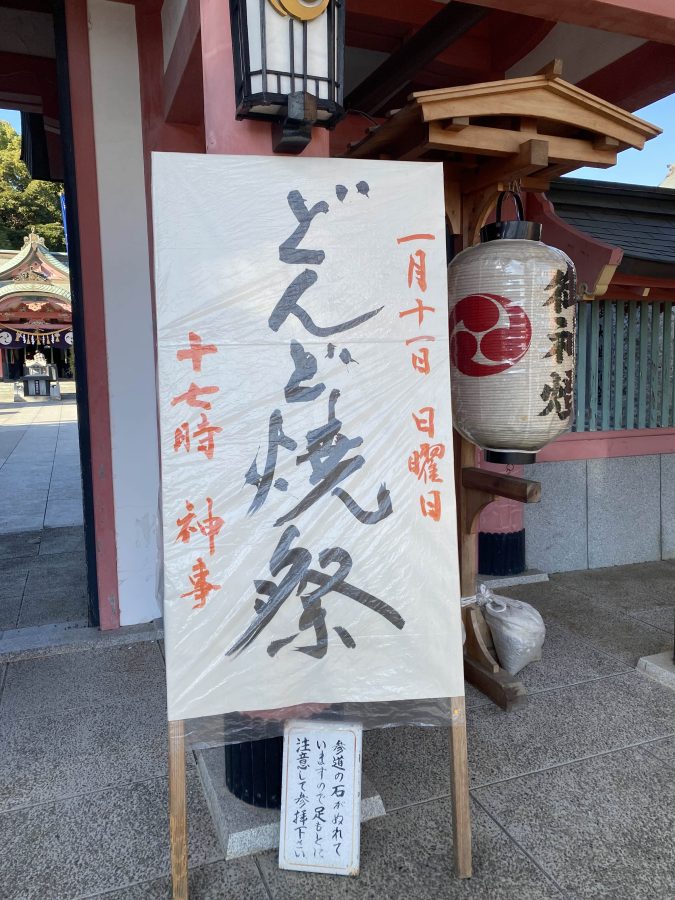 一月十一日 日曜日
どんど焼祭
十七時 神事
参道の石がぬれて
いますので足もとに
注意して参拝下さい